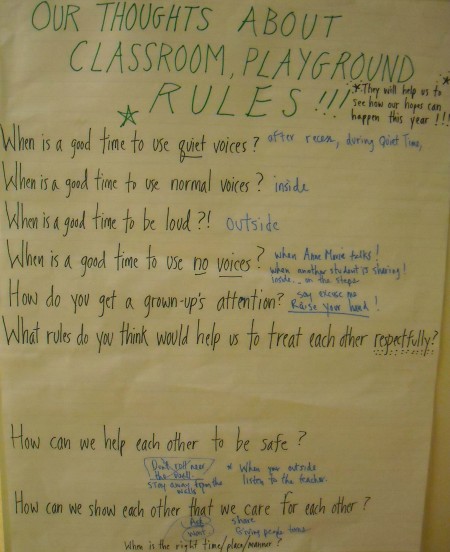 OUR THOUGHTS ABOUT
CLASSROOM, PLAYGROUND
RULES!!!
*They will help us to
see how our hopes can
happen this year!!!
When is a good time to use quiet voices? after recess, during Quiet Time,
When is a good time to use normal voices? inside
When is a good time to be loud?! outside
When is a good time to use no voices? when Anne Marie talks!
when another student is sharing!
inside.. on the steps
How do you get a grown-up's attention? say excuse me
Raise your hand!
What rules do you think would help us to treat each other respectfully?
How can we help each other to be safe?
Don't
near
the
stay away from the
walls
* When you outside
listen to the teacher.
How can we show each other that we care for each other?
Ask
share
want
Giving people turns
When is the right time/place/manner?